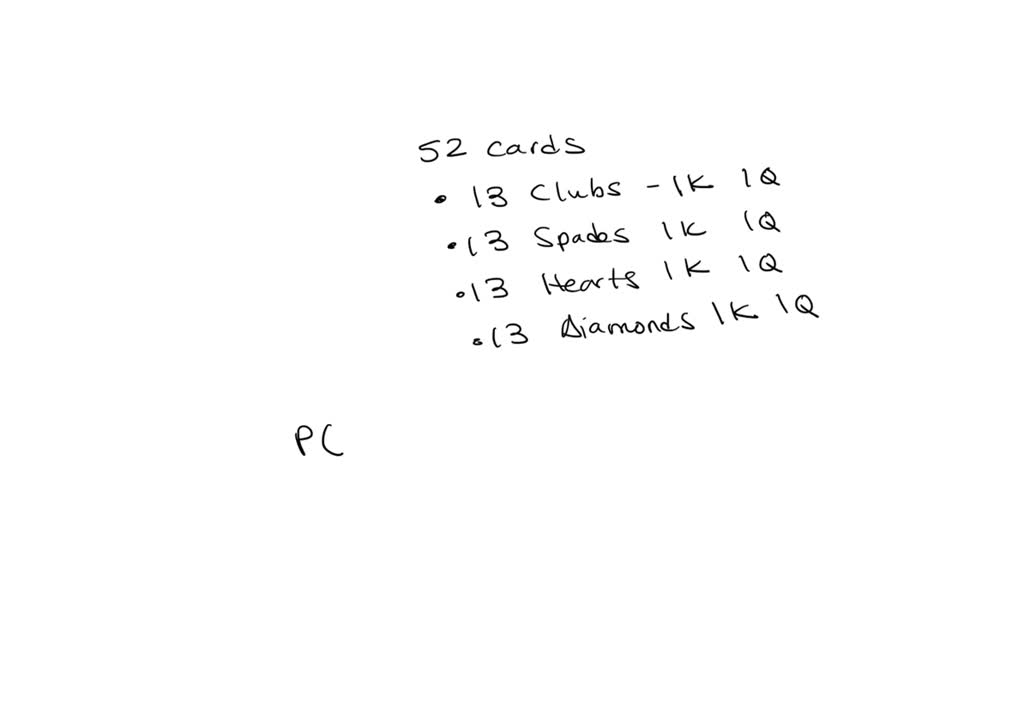 52 cards
• 13 Clubs - 1K 1Q
• 13 Spades 1K 1Q
• 13 Hearts 1K 1Q
• 13 Diamonds 1K 1Q
P(